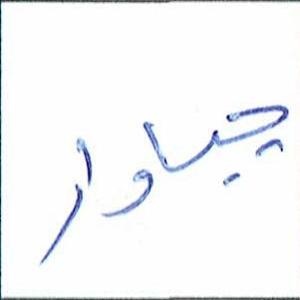 جیاوار